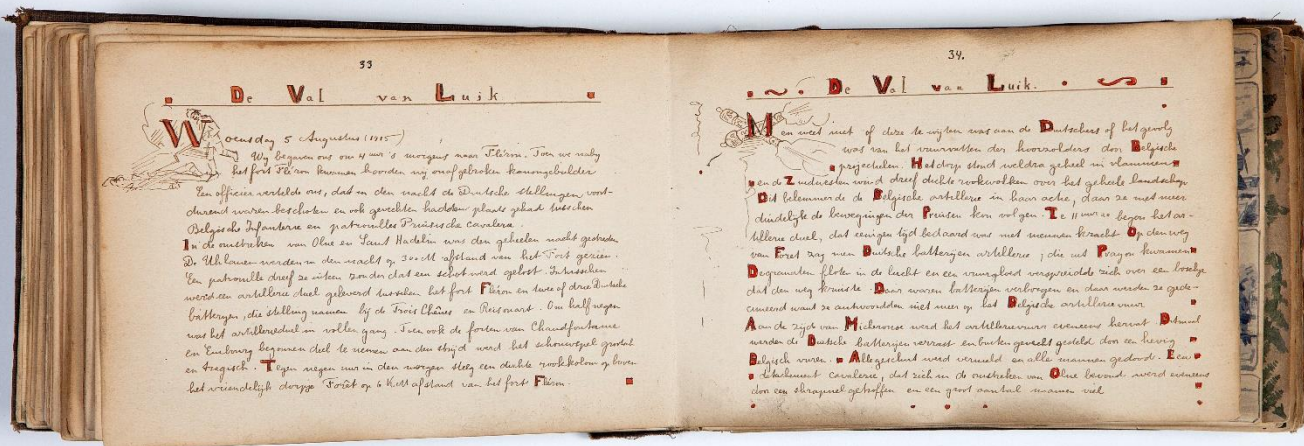 33
De Val van Luik
Woensdag 5 Augustus (1915)
Wy begaven ons om 4 uur 's morgens naar Fléron. Toen we naby
het fort Fléron kwamen hoorden wy onafgebroken kanongebulder
Een officier vertelde ons, dat in den nacht de Duitsche stellingen voort-
durend waren beschoten en ook gevechten hadden plaats gehad tusschen
Belgische Infanterie en patrouilles Pruisische cavalerie.
In de omstreken van Olne en Saint Hadelin was den geheelen nacht gestreden
De Uhlanen werden in den nacht op 300 M afstand van het Fort gezien.
Een patrouille dreef ze uiteen zonder dat een schot werd gelost. Intusschen
werd een artillerie duel geleverd tusschen het fort Fléron en twee of drie Duitsche
batteryen, die stelling namen bij de Trois Chênes en Reissonart. Om half negen
was het artillerieduel in vollen gang. Toen ook de forten van Chaudfontaine
en Embourg begonnen deel te nemen aan den strijd werd het schouwspel grootsch
en tragisch. Tegen negen uur in den morgen steeg een dichte rookkolom op boven
het vriendelijk dorpje Forêt op 6 K.M afstand van het fort Fléron.
34.
De Val van Luik.
Men weet niet of deze te wijten was aan de Duitschers of het gevolg
was van het vuurvatten der hooizolders door Belgische
projectielen. Het dorp stond weldra geheel in vlammen
en de Zuidwesten wind dreef dichte rookwolken over het geheele landschap
Dit belemmerde de Belgische artillerie in haar actie, daar ze niet meer
duidelijk de bewegingen der Pruisen kon volgen. Te 11 uur begon het ar-
tillerie duel, dat eenigen tijd bedaard was met nieuwe kracht. Op den weg
van Forêt zag men Duitsche batteryen artillerie, die uit Prayon kwamen
De granaten floten in de lucht en een vuurgloed verspreidde zich over een boschje
dat den weg kruiste. Daar waren batteryen verborgen en daar werden ze gede-
cimeerd want ze antwoordden niet meer op het Belgische artillerievuur
Aan de zijde van Micheroux werd het artillerievuur eveneens hervat. Ditmaal
werden de Duitsche batteryen verrast en buiten gevecht gesteld door een hevig
Belgisch vuren. Alle geschut werd vernield en alle mannen gedood. Een
detachement cavalerie, dat zich in de omstreken van Olne bevond werd eveneens
door een shrapnel getroffen en een groot aantal mannen viel